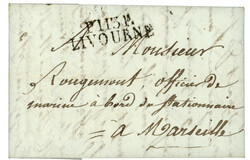 P.113.P.
LIVOURNE
A Monsieur
Rougemont, officier de
marine à bord du stationnaire
= à Marseille